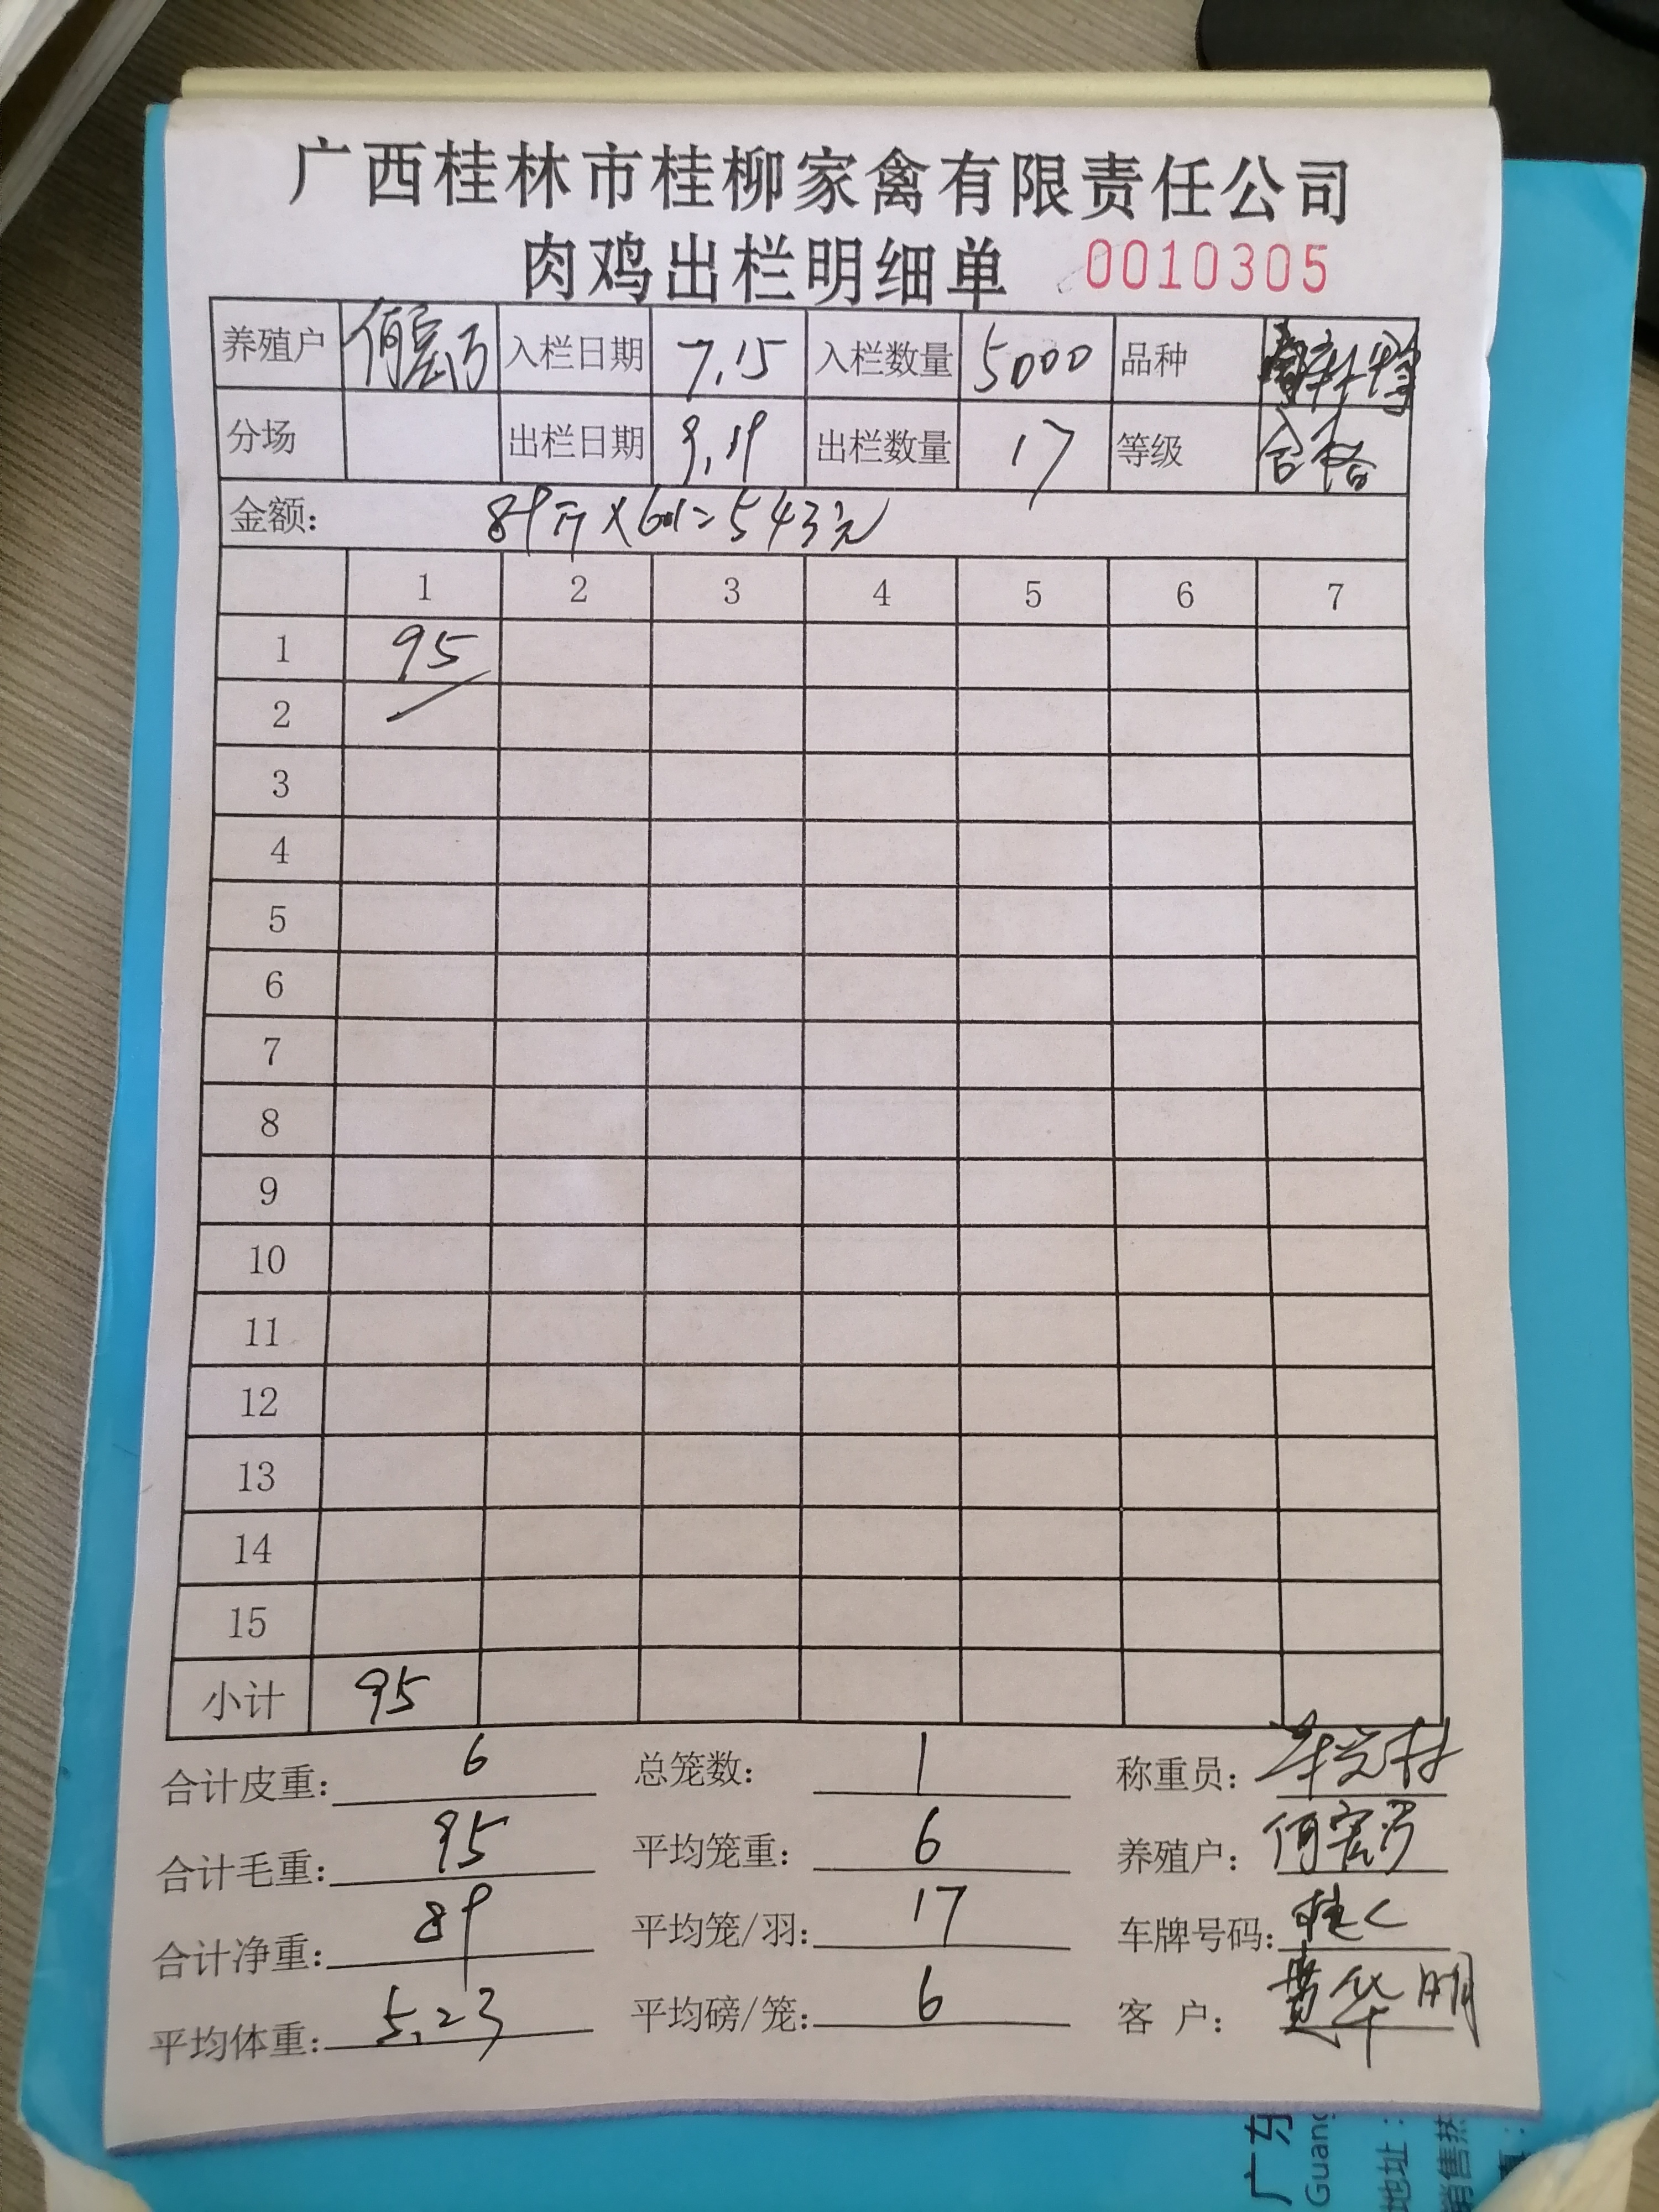 广西桂林市桂柳家禽有限责任公司
肉鸡出栏明细单 0010305
养殖户 何宏万 入栏日期 7.15 入栏数量 5000 品种
分场 出栏日期 9.19 出栏数量 17 等级 合格
金额: 89斤×6.1=543元
1 2 3 4 5 6 7
1 95
2
3
4
5
6
7
8
9
10
11
12
13
14
15
小计 95
合计皮重: 6 总笼数: 1 称重员:
合计毛重: 95 平均笼重: 6 养殖户: 何宏万
合计净重: 89 平均笼/羽: 17 车牌号码: 桂C
平均体重: 5.23 平均磅/笼: 6 客 户: 黄华明
广东
Guang
地址:
销售热